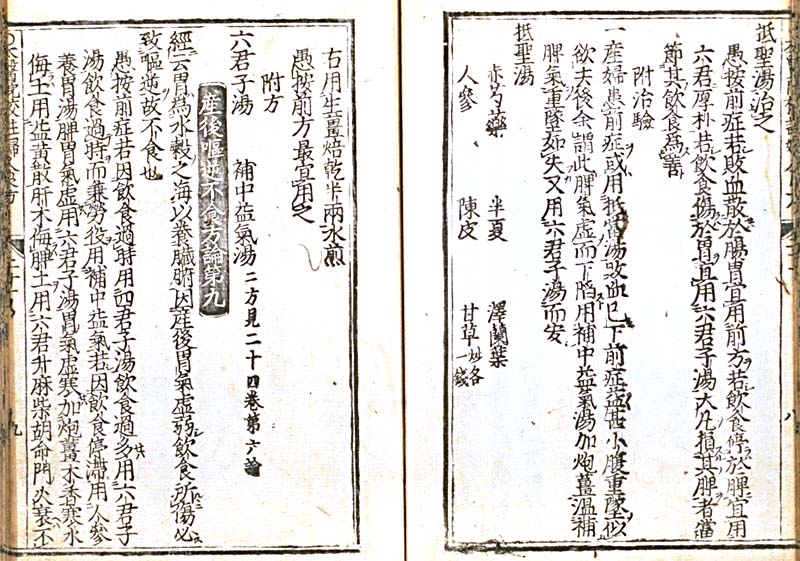 抵聖湯治之
愚按前症若敗血散於腸胃宜用前方若飲食停於脾宜用
六君厚朴若飲食傷於胃宜用六君子湯大凡損其脾者當
節其飲食為善
附治驗
一産婦患前症或用抵當湯敗血已下前症益甚小腹重墜似
欲去後余謂此脾氣虛而下陷用補中益氣湯加炮薑溫補
脾氣重墜如失又用六君子湯而安
抵聖湯
赤芍藥 半夏 澤蘭葉
人參 陳皮 甘草炒各一錢
右用生薑焙乾半兩水煎
愚按前方最宜用之
附方
六君子湯 補中益氣湯 二方見二十四卷第六論
産後嘔逆不食方論第九
經云胃為水穀之海以養臟腑因産後胃氣虛弱飲食所傷必
致嘔逆故不食也
愚按前症若因飲食過時用四君子湯飲食過多用六君子
湯飲食過時而兼勞役用補中益氣若因飲食停滯用人參
養胃湯脾胃氣虛用六君子湯胃氣虛寒加炮薑木香寒水
侮土用益黃散肝木侮脾土用六君升麻柴胡命門火衰不
九